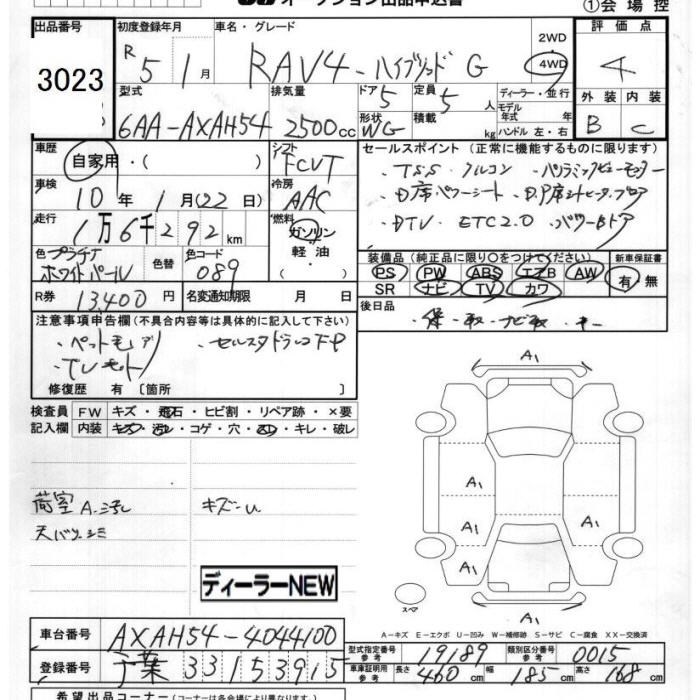 オークション出品申込書
①会場控
出品番号 3023
初度登録年月 R 5 1月
車名・グレード RAV4-ハイブリッド G
2WD 4WD
評価点 4
型式 6AA-AXAH54
排気量 2500cc
ドア 5 形状 WG
定員 5人 積載 kg
ディーラー・並行
モデル年式 年式
ハンドル 左・右
外装 B
内装 C
車歴 自家用・( )
シフト FCVT
車検 10年1月(22日)
冷房 AAC
走行 1万6千292km
燃料 ガソリン 軽油
色 プラチナホワイトパール
色替
色コード 089
R券 13,400円
名変通知期限 月 日
セールスポイント (正常に機能するものに限ります)
・TSS・クルコン ・パノラミックビューモニター
・D席パワーシート ・D.P席シートヒータ、ブロア
・DTV ・ETC2.0 ・パワーBドア
装備品 (純正品に限り○をつけてください)
PS PW ABS エアB AW
SR ナビ TV カワ
新車保証書 有・無
後日品 保-取-ナビ取-キー
注意事項申告欄 (不具合内容等は具体的に記入して下さい)
・ペットモード
・TVキット
修復歴 有 〔箇所 〕
検査員記入欄
FW キズ・飛石・ヒビ割・リペア跡・×要
内装 キズ・汚れ・コゲ・穴・スレ・キレ・破レ
荷室 A.ヨゴレ
キズ-U
天バリ-シミ
ディーラーNEW
A1
A1
A1
A1
A1
A1
スペア
A-キズ E-エクボ U-凹み W-補修跡 S-サビ C-腐食 XX-交換済
車台番号 AXAH54-4044100
登録番号 千葉 331 53915
型式指定番号 参考 19189
類別区分番号 参考 0015
車庫証明用 参考 長さ 460cm 幅 185cm 高さ 168cm
希望出品コーナー (コーナーは各会場により